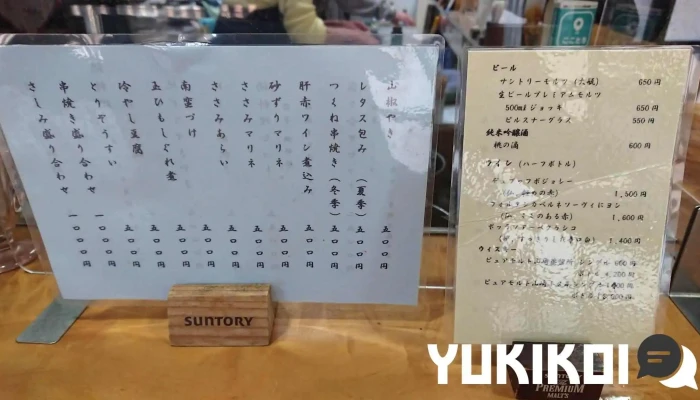 山椒やき 五〇〇円
レタス包み（夏季）五〇〇円
つくね串焼き（冬季）五〇〇円
肝赤ワイン煮込み 五〇〇円
砂ずりマリネ 五〇〇円
ささみマリネ 五〇〇円
ささみあらい 五〇〇円
南蛮づけ 五〇〇円
五ひもしぐれ煮 五〇〇円
冷やし豆腐 五〇〇円
とりぞうすい 一〇〇〇円
串焼き盛り合わせ 一〇〇〇円
さしみ盛り合わせ
SUNTORY
ビール
サントリーモルツ（大瓶） 650円
生ビールプレミアムモルツ
500mlジョッキ 650円
ピルスナーグラス 550円
純米吟醸酒
桃の滴 600円
ワイン（ハーフボトル）
1,500円
1,600円
1,400円
ウイスキー
ピュアモルト シングル
ピュアモルト山崎 シングル
PREMIUM
MALT'S
YUKIKOI